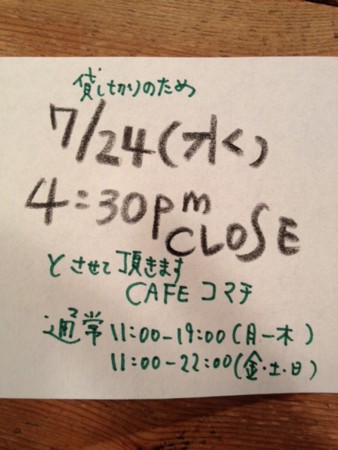 貸し切りのため
7/24(水)
4:30pm
CLOSE
とさせて頂きます
CAFE コマチ
通常 11:00-19:00(月-木)
11:00-22:00(金・土・日)